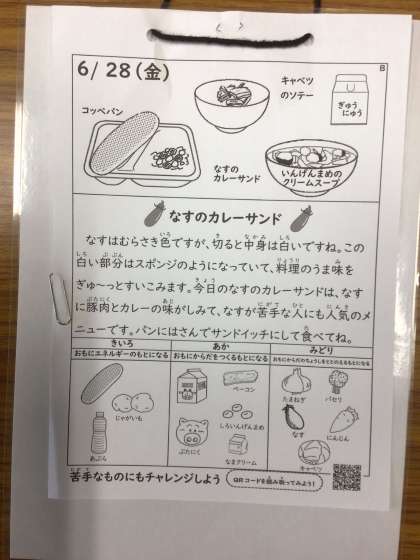 6/28(金)
B
キャベツ
のソテー
ぎゅう
にゅう
コッペパン
なすの
カレーサンド
いんげんまめの
クリームスープ
なすのカレーサンド
なすはむらさき色ですが、切ると中身は白いですね。この
白い部分はスポンジのようになっていて、料理のうま味を
ぎゅ〜っとすいこみます。今日のなすのカレーサンドは、なす
に豚肉とカレーの味がしみて、なすが苦手な人にも人気のメ
ニューです。パンにはさんでサンドイッチにして食べてね。
きいろ
おもにエネルギーのもとになる
あか
おもにからだをつくるもとになる
みどり
おもにからだのちょうしをととのえるもとになる
じゃがいも
あぶら
ベーコン
しろいんげんまめ
ぶたにく
なまクリーム
たまねぎ
パセリ
なす
にんじん
キャベツ
苦手なものにもチャレンジしよう
QRコードを読み取ってみよう!